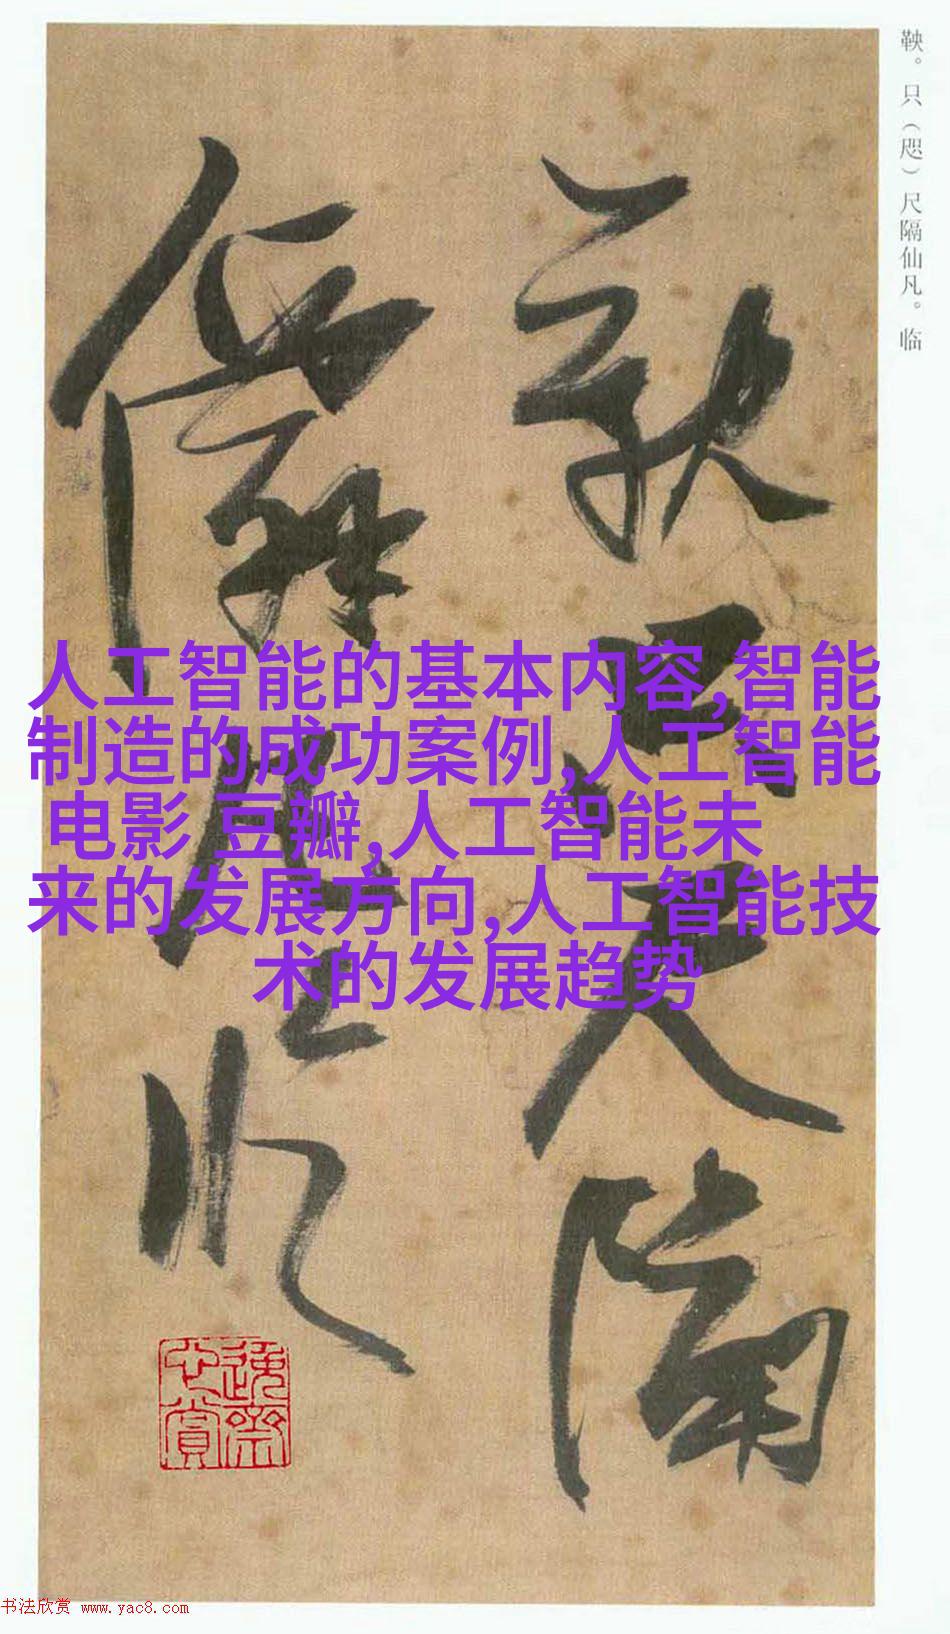 鞅。只（咫）尺隔仙凡。临
鞅只尺隔
仙凡临
人工智能的基本内容,智能
制造的成功案例,人工智能
电影 豆瓣,人工智能未
来的发展方向,人工智能技
术的发展趋势
书法欣赏 www.yac8.com